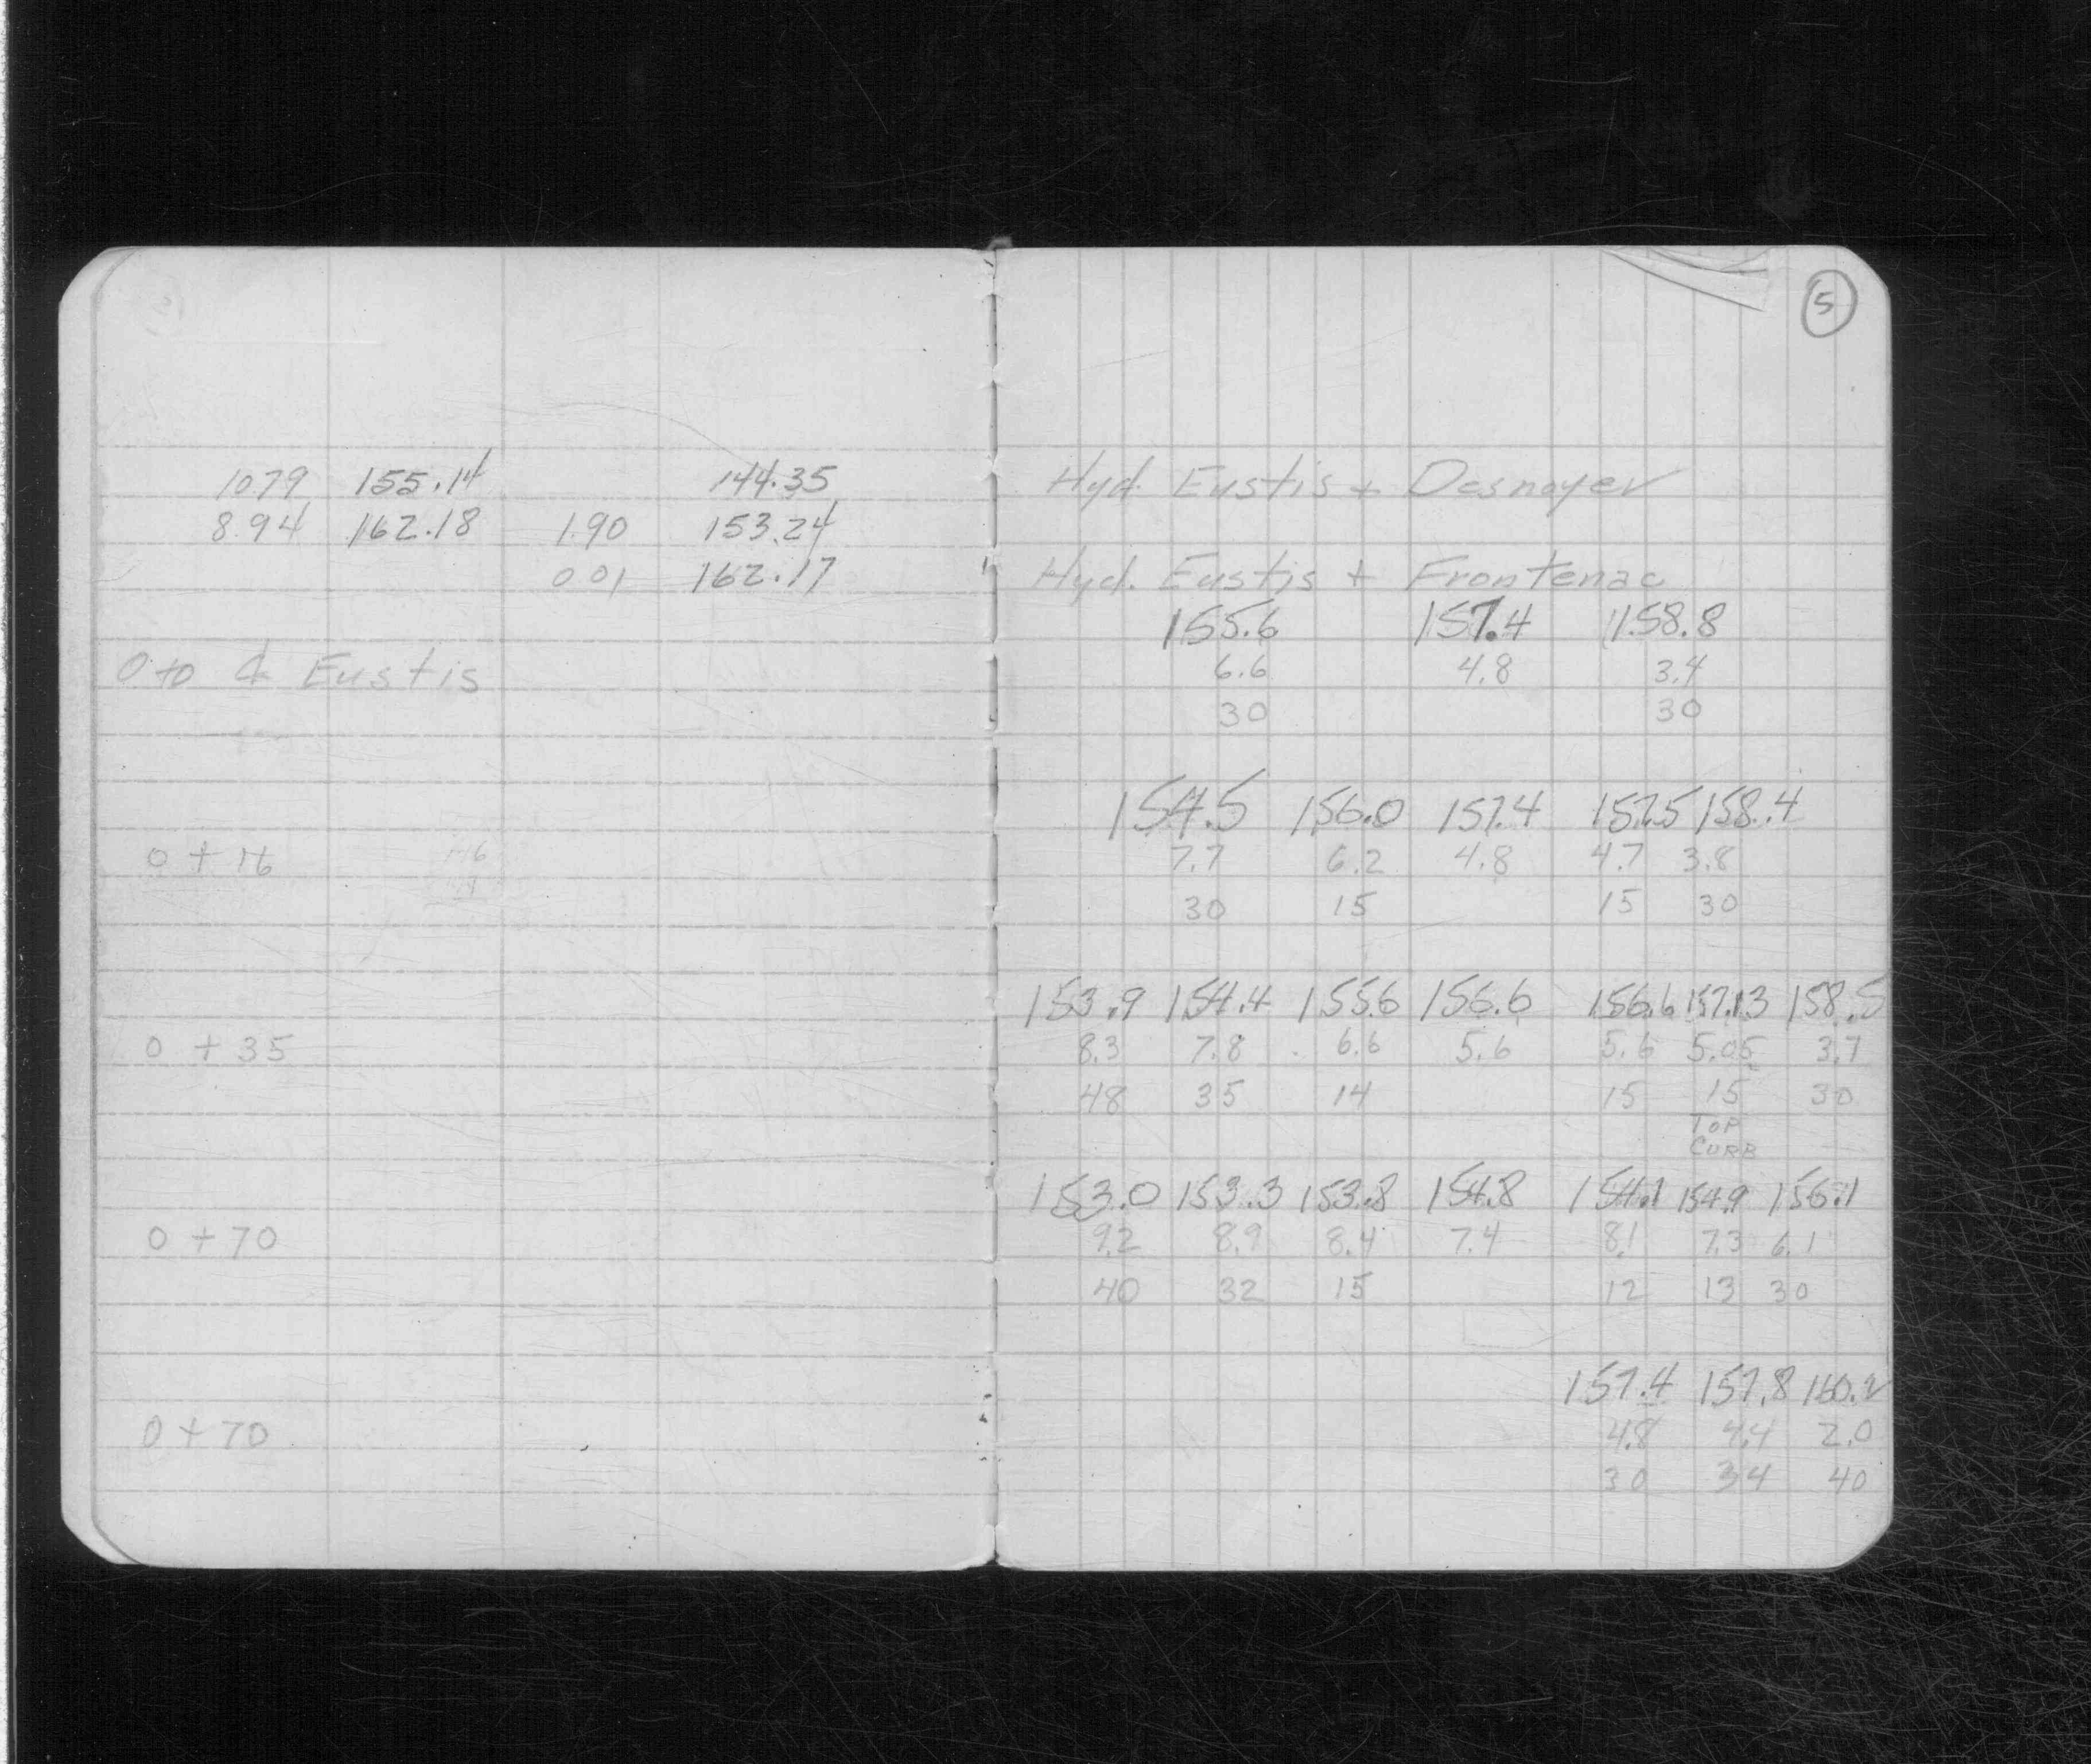 5
10.79 155.14 144.35 Hyd. Eustis + Desnoyer
8.94 162.18 1.90 153.24
0.01 162.17 Hyd. Eustis + Frontenac
155.6 157.4 158.8
0+0 ℄ Eustis 6.6 4.8 3.4
30 30
154.5 156.0 157.4 157.5 158.4
0 + 16 7.7 6.2 4.8 4.7 3.8
30 15 15 30
153.9 154.4 155.6 156.6 156.6 157.13 158.5
0 + 35 8.3 7.8 6.6 5.6 5.6 5.05 3.7
48 35 14 15 15 30
TOP
CURB
153.0 153.3 153.8 154.8 154.1 154.9 156.1
0 + 70 9.2 8.9 8.4 7.4 8.1 7.3 6.1
40 32 15 12 13 30
157.4 157.8 160.2
0 + 70 4.8 4.4 2.0
30 34 40